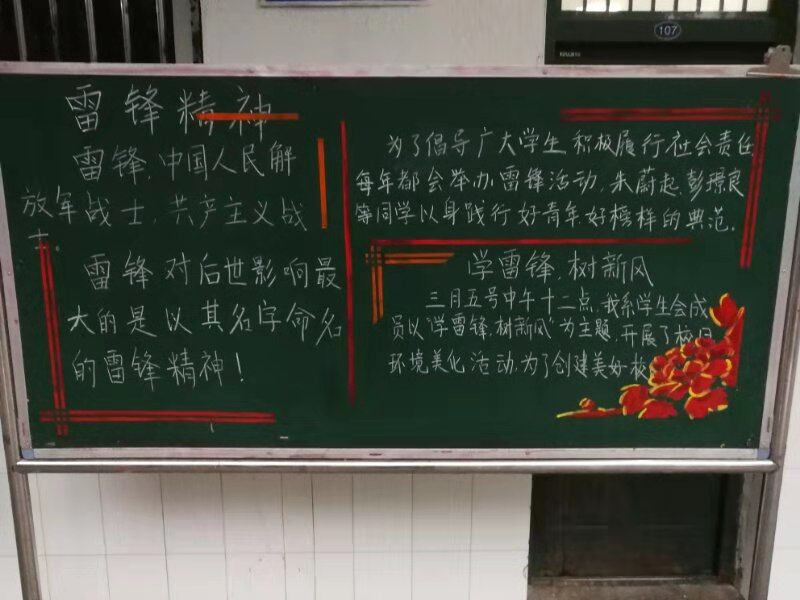 107
雷锋精神
雷锋,中国人民解
放军战士,共产主义战
士。
雷锋对后世影响最
大的是以其名字命名
的雷锋精神!
为了倡导广大学生积极履行社会责任
每年都会举办雷锋活动,朱蔚起,彭璟良
等同学以身践行好青年好榜样的典范.
学雷锋,树新风
三月五号中午十二点,我系学生会成
员以"学雷锋,树新风"为主题,开展了校
环境美化活动,为了创建美好校